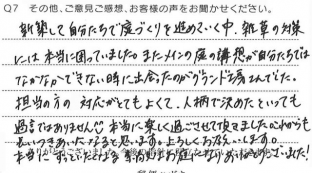 Q7 その他、ご意見ご感想、お客様の声をお聞かせください。
新築して自分たちで庭づくりを進めていく中、雑草の対策
には本当に困っていました。またメインの庭の構想が自分たちでは
なかなかできない時に出会ったのがグランド工房さんでした。
担当の方の対応がとてもよくて、人柄で決めたといっても
過言ではありません 本当に楽しく過ごせせて頂きました これからも
長いつきあいになると思います。よろしくお願いします。
本当に ありがとうございました!